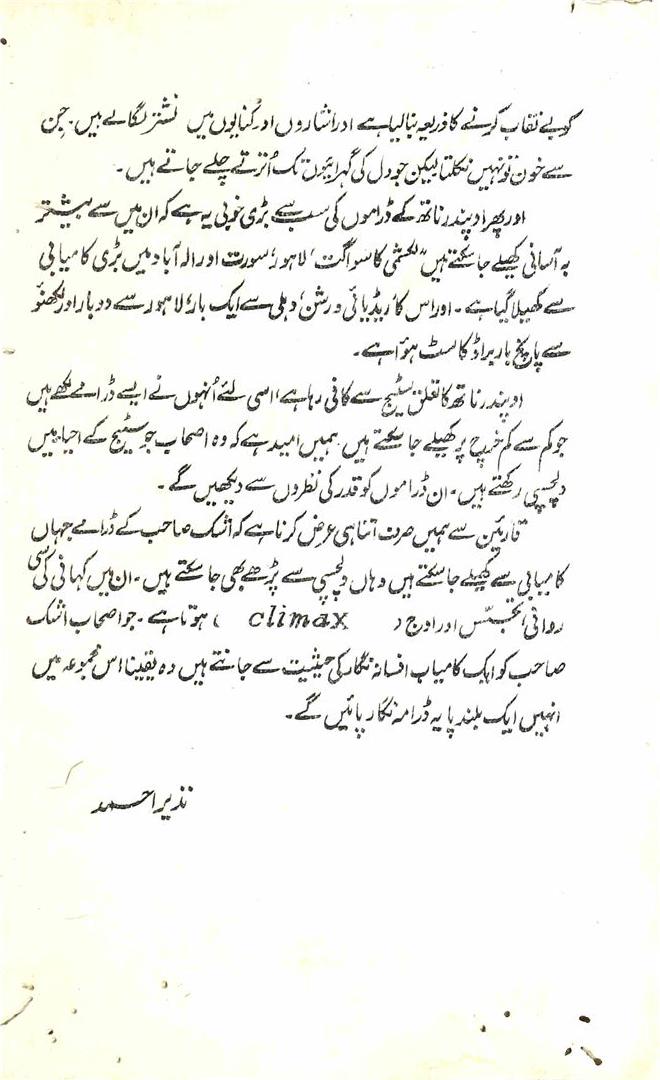 کو بے نقاب کرنے کا ذریعہ بنا لیا ہے اور اشاروں اور کنایوں میں نشتر لگائے ہیں۔ جن
سے خون تو نہیں نکلتا لیکن جو دل کی گہرائیوں تک اُترتے چلے جاتے ہیں۔
اور پھر اوپندر ناتھ کے ڈراموں کی سب سے بڑی خوبی یہ ہے کہ ان میں سے بیشتر
بہ آسانی کھیلے جا سکتے ہیں "لکشمی کا سواگت" لاہور، سورت اور الہ آباد میں بڑی کامیابی
سے کھیلا گیا ہے۔ اور اس کا ریڈیائی ورشن، دہلی سے ایک بار، لاہور سے دو بار اور لکھنؤ
سے پانچ بار براڈ کاسٹ ہوا ہے۔
اوپندر ناتھ کا تعلق سٹیج سے کافی رہا ہے، اسی لئے اُنہوں نے ایسے ڈرامے لکھے ہیں
جو کم سے کم خرچ پر کھیلے جا سکتے ہیں۔ ہمیں امید ہے کہ وہ اصحاب جو سٹیج کے احیا میں
دلچسپی رکھتے ہیں۔ ان ڈراموں کو قدر کی نظروں سے دیکھیں گے۔
قارئین سے ہمیں صرف اتنا ہی عرض کرنا ہے کہ اشک صاحب کے ڈرامے جہاں
کامیابی سے کھیلے جا سکتے ہیں وہاں دلچسپی سے پڑھے بھی جا سکتے ہیں۔ ان میں کہانی کی سی
روانی، تجسّس اور اوج ( climax ) ہوتا ہے۔ جو اصحاب اشک
صاحب کو ایک کامیاب افسانہ نگار کی حیثیت سے جانتے ہیں وہ یقیناً اس مجموعہ میں
انہیں ایک بلند پایہ ڈرامہ نگار پائیں گے۔
نذیر احمد